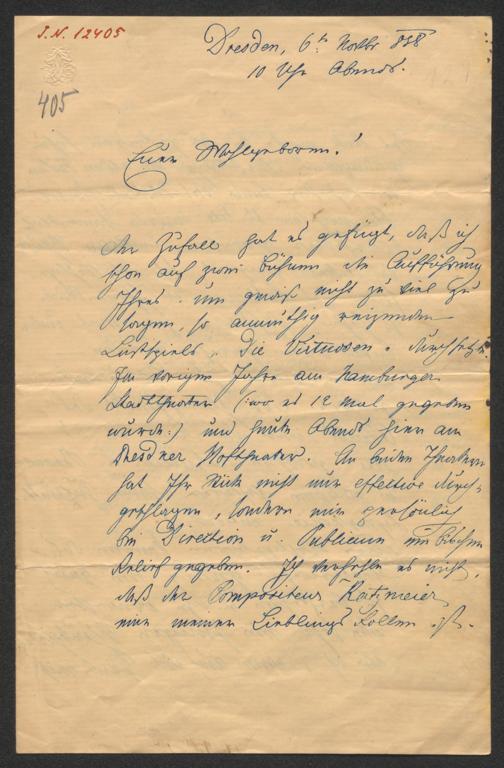 I.N. 12405
405
Dresden, 6t. Novbr 858
10 Uhr Abends.
Euer Wohlgeboren!
Der Zufall hat es gefügt, daß ich
schon auf zwei Bühnen die Aufführung
Ihres - um gewiß nicht zu viel zu
sagen, so anmuthig reizenden
Lustspiels „Die Virtuosen" durchsetzte.
Im vorigen Jahre am Hamburger
Stadttheater (:wo es 12 mal gegeben
wurde:) und heute Abends hier am
Dresdner Hoftheater. An beiden Theatern
hat Ihr Stück nicht nur effective durch-
geschlagen, sondern mir persönlich
bei Direction u. Publicum ein bischen
Relief gegeben. Ich verhehle es nicht,
daß der Compositeur
eine meiner Lieblings Rollen ist.